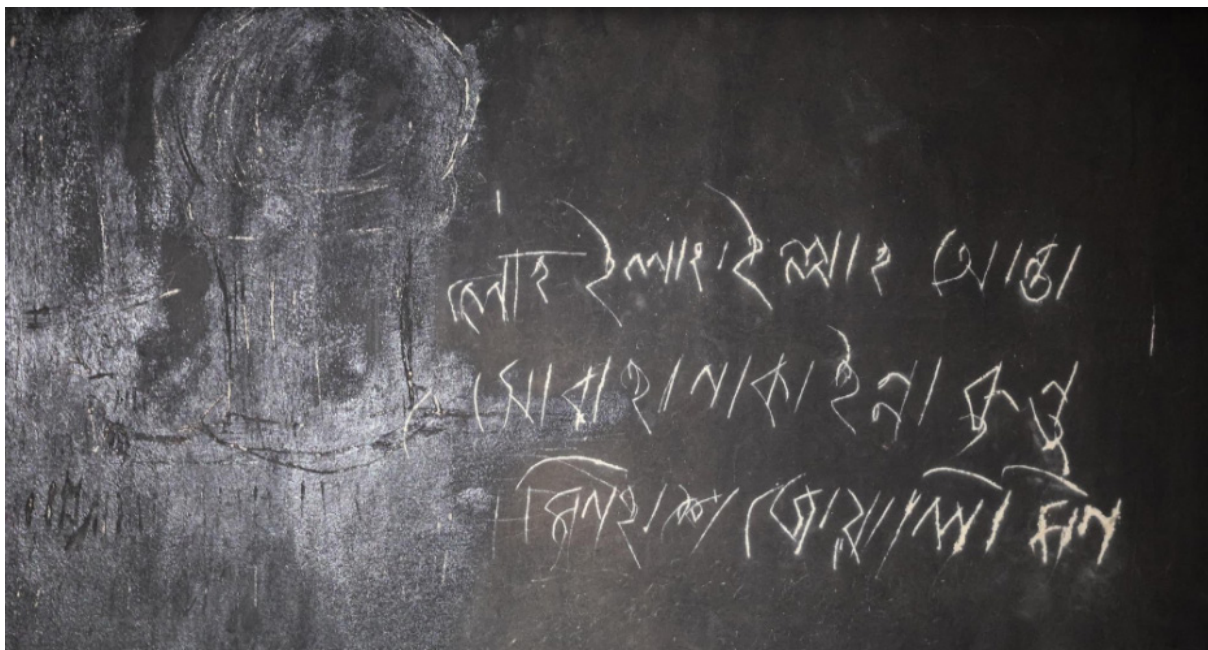 লাহে ইলাহা ইল্লাহ আন্তা
সোবাহানাকা ইন্না কুন্তু
মিনহাল জোয়ালিমিন